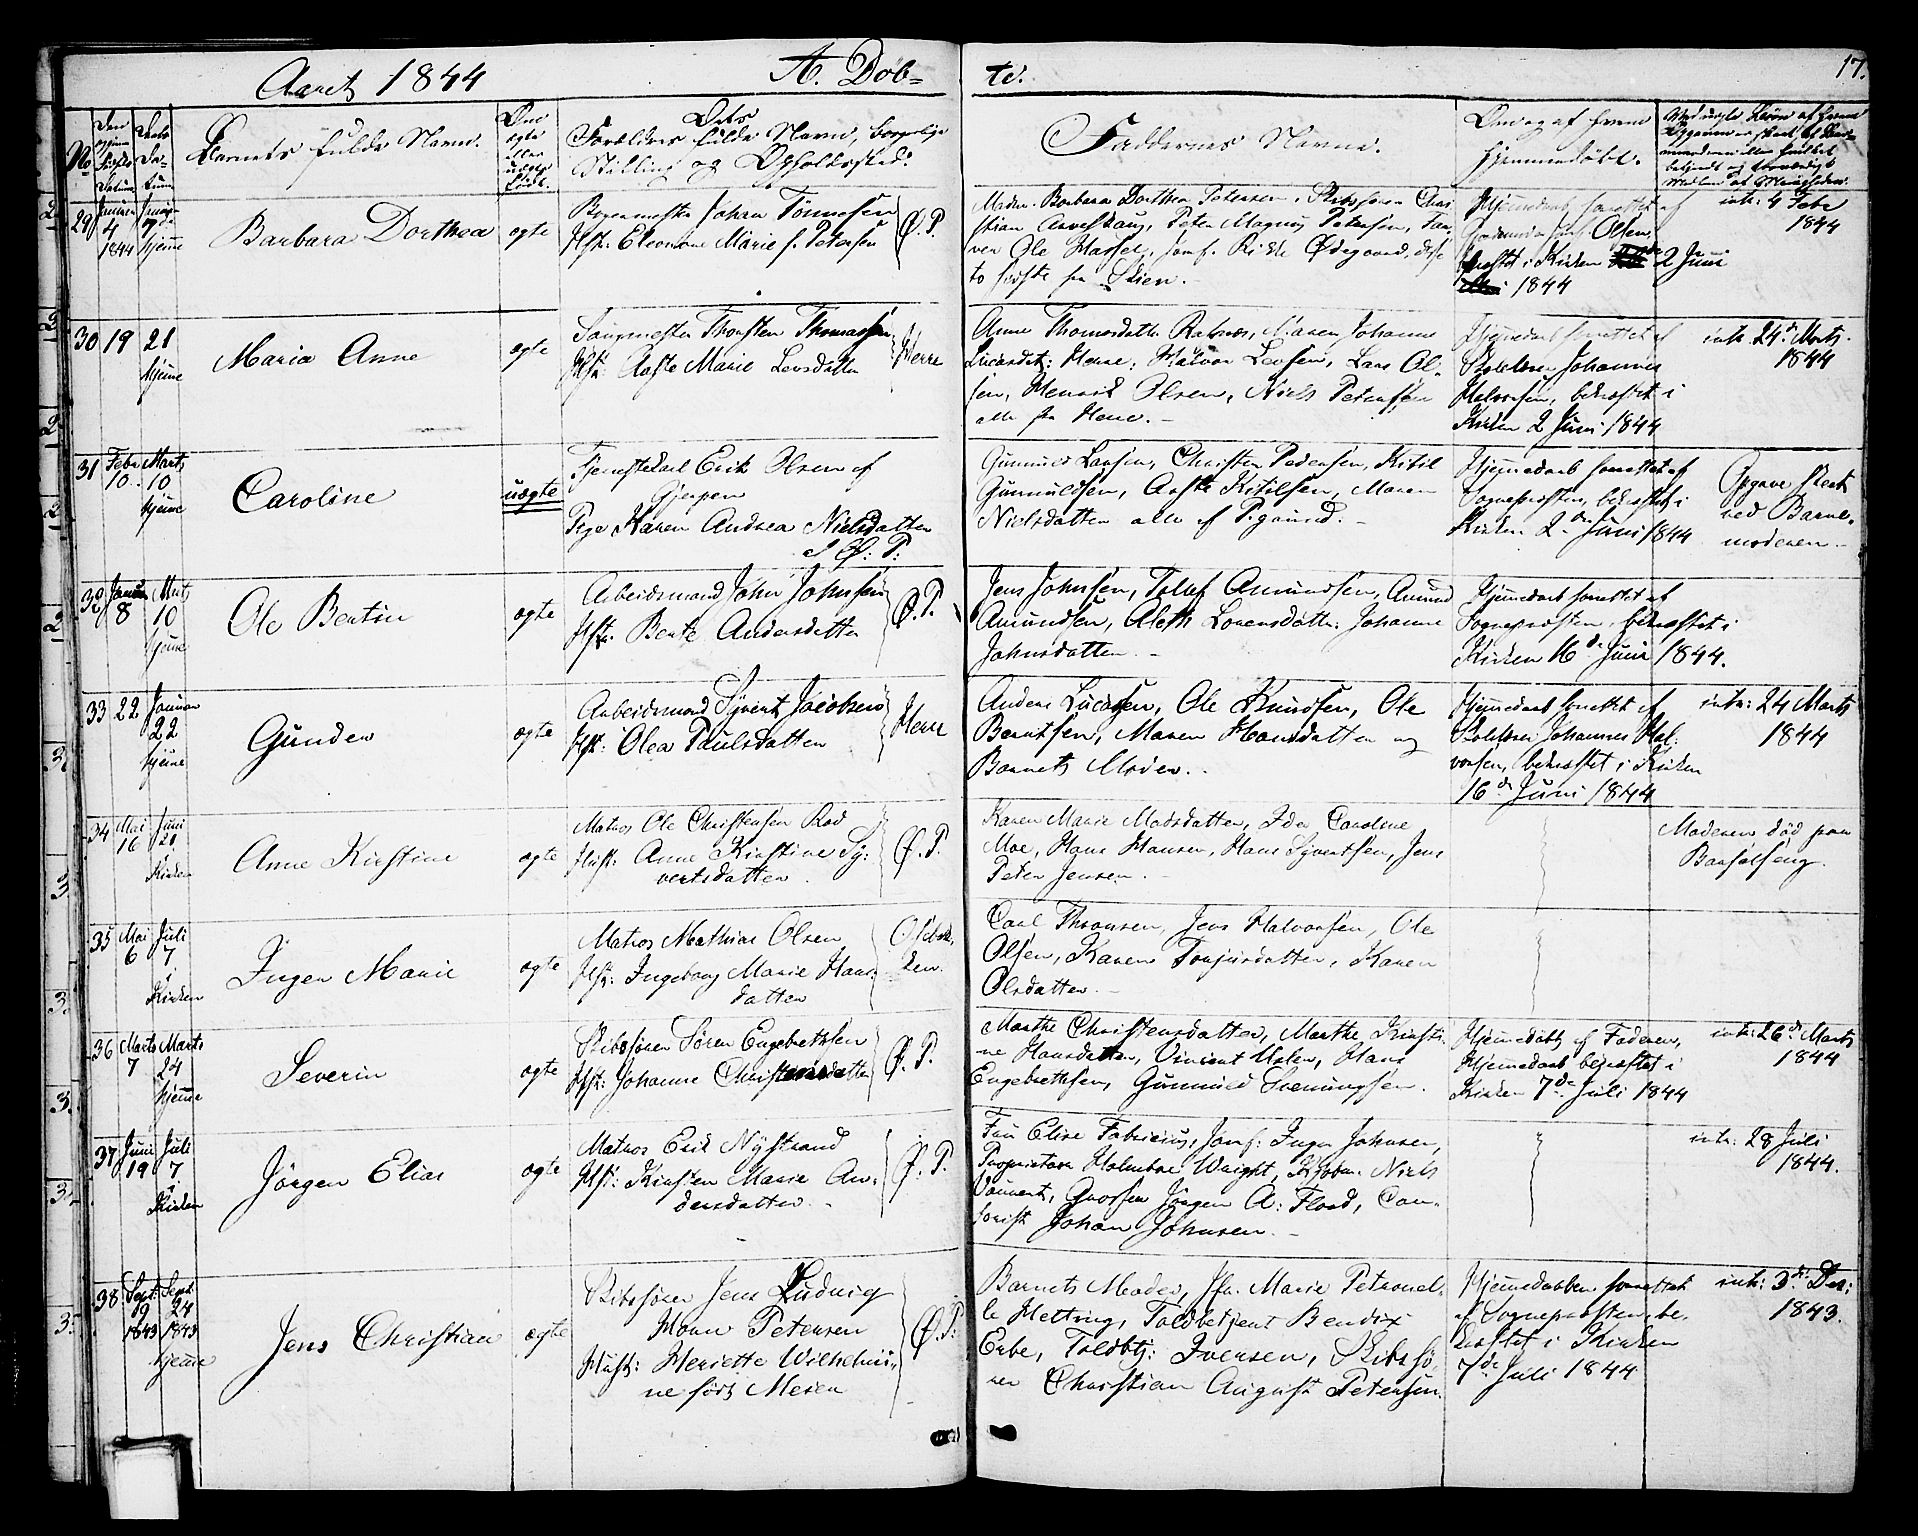 Aaret 1844
A. Døb-
te.
17.
No
Barnets fulde Navn.
Forældres fulde Navn, borgerlige
Stilling og Opholdssted.
Faddernes Navne.
Om og af hvem
hjemmedøbt.
29 Januar 4 1844
hjemme
Barbara Dorthea
ægte
Johan Tønnesen
Hst: Eleonore Marie f. Petersen
Ø. P.
Madm. Barbara Dorthea Petersen, Skibsfører Chri-
stian, Peter Magnus Petersen,
Ole, Jomf. Ødegaard, disse
to sidste fra Skien.
Hjemmedaab forrettet af
Olsen,
i Kirken 2 Juni
1844
intr: 4 Febr
1844
30 19 21
hjemme
Maria Anne
ægte
Thorsten Thomassen
Hst: Aaste Marie Larsdatter
Herre
Anne Thomasdatter, Maren Johanne
Herre, Halvor Larsen, Lars Ol-
sen, Henrik Olsen, Niels Petersen
alle fra Herre.
Hjemmedaab forrettet af
Skolelærer Johannes
Halvorsen, bekræftet i
Kirken 2 Juni 1844
intr: 24de Marts
1844
31 Febr 10. Marts 10
hjemme
Caroline
uægte
Tjenestekarl Erik Olsen af
Gjerpen
Pige Karen Andrea Nielsdatter
af Ø: P:
Gunnuld Larsen, Christen Pedersen, Kittil
Gunnuldsen, Aaste Kittilsen, Maren
Nielsdatter alle af P.grund.
Hjemmedaab forrettet af
Sognepresten, bekræftet i
Kirken 2den Juni 1844
Opgave skeet
ved Barne-
moderen
32 Januar 8 Marts 10
hjemme
Ole Bentin
ægte
Arbeidsmand John Johnsen
Hst: Bente Andersdatter
Ø. P.
Jens Johnsen, Tollef Amundsen, Amund
Amundsen, Aleth Lorensdatter, Johanne
Johnsdatter.
Hjemmedaab forrettet af
Sognepresten, bekræftet i
Kirken 16de Juni 1844.
33 22 Januar 22
hjemme
Gunder
ægte
Arbeidsmand Syvert Jacobsen
Hst: Olea Paulsdatter
Herre
Anders Lucassen, Ole Knudsen, Ole
Berntsen, Maren Hansdatter og
Barnets Moder.
Hjemmedaab forrettet af
Skolelærer Johannes Hal-
vorsen, bekræftet i Kirken
16de Juni 1844
intr: 24 Marts
1844
34 Mai 16 Juni 21
Kirken
Anne Kirstine
ægte
Matros Ole Christensen Rød
Hst: Anne Kirstine Sy-
vertsdatter
Ø. P.
Karen Marie Madsdatter, Ida Caroline
Moe, Hans Hansen, Hans Syvertsen, Jens
Peter Jensen.
Moderen død paa
Barselseng.
35 Mai 6 Juli 7
i
Kirken
Inger Marie
ægte
Matros Mathias Olsen
Hst: Ingeborg Marie Hans-
datter
Carl Thronsen, Jens Halvorsen, Ole
Olsen, Karen Torjusdatter, Karen
Olsdatter.
36 Marts 7 Marts 24
hjemme
Severin
ægte
Skibsfører Søren Engebrethsen
Hst: Johanne Christensdatter
Ø. P.
Marthe Christensdatter, Marthe Kirsti-
ne Hansdatter, Vincent, Hans
Engebrethsen, Gunnuld Svenningsen.
Hjemmedøbt af Faderen,
Hjemmedaab bekræftet i
Kirken 7de Juli 1844
intr: 26de Marts
1844
37 Juni 19 Juli 7
i
Kirken
Jørgen Elias
ægte
Matros Erik Nystrand
Hst: Kirsten Marie An-
dersdatter
Ø. P.
Fru Elise Fabricius, Jomf: Inger Johnsen,
Proprietær Holmboe Wright, Kjøbm. Niels
Vauvert, Grosserer Jørgen A: Flood, Can-
Johan Johnsen.
intr: 28 Juli
1844.
38 Sept. 19 1843 Sept. 24 1843
hjemme
Jens Christian
ægte
Skibsfører Jens Ludvig
Petersen
Hust: Henriette Wilhelmi-
ne født
Ø. P:
Barnets Moder, Jfr. Marie Petronel-
le Hetting, Toldbetjent Bendix
Erbe, Toldbtj: Iversen, Skibsfø-
rer Christian August Petersen.
Hjemmedaaben forrettet
af Sognepresten, be-
kræftet i Kirken
7de Juli 1844
intr: 3die Dec:
1843.